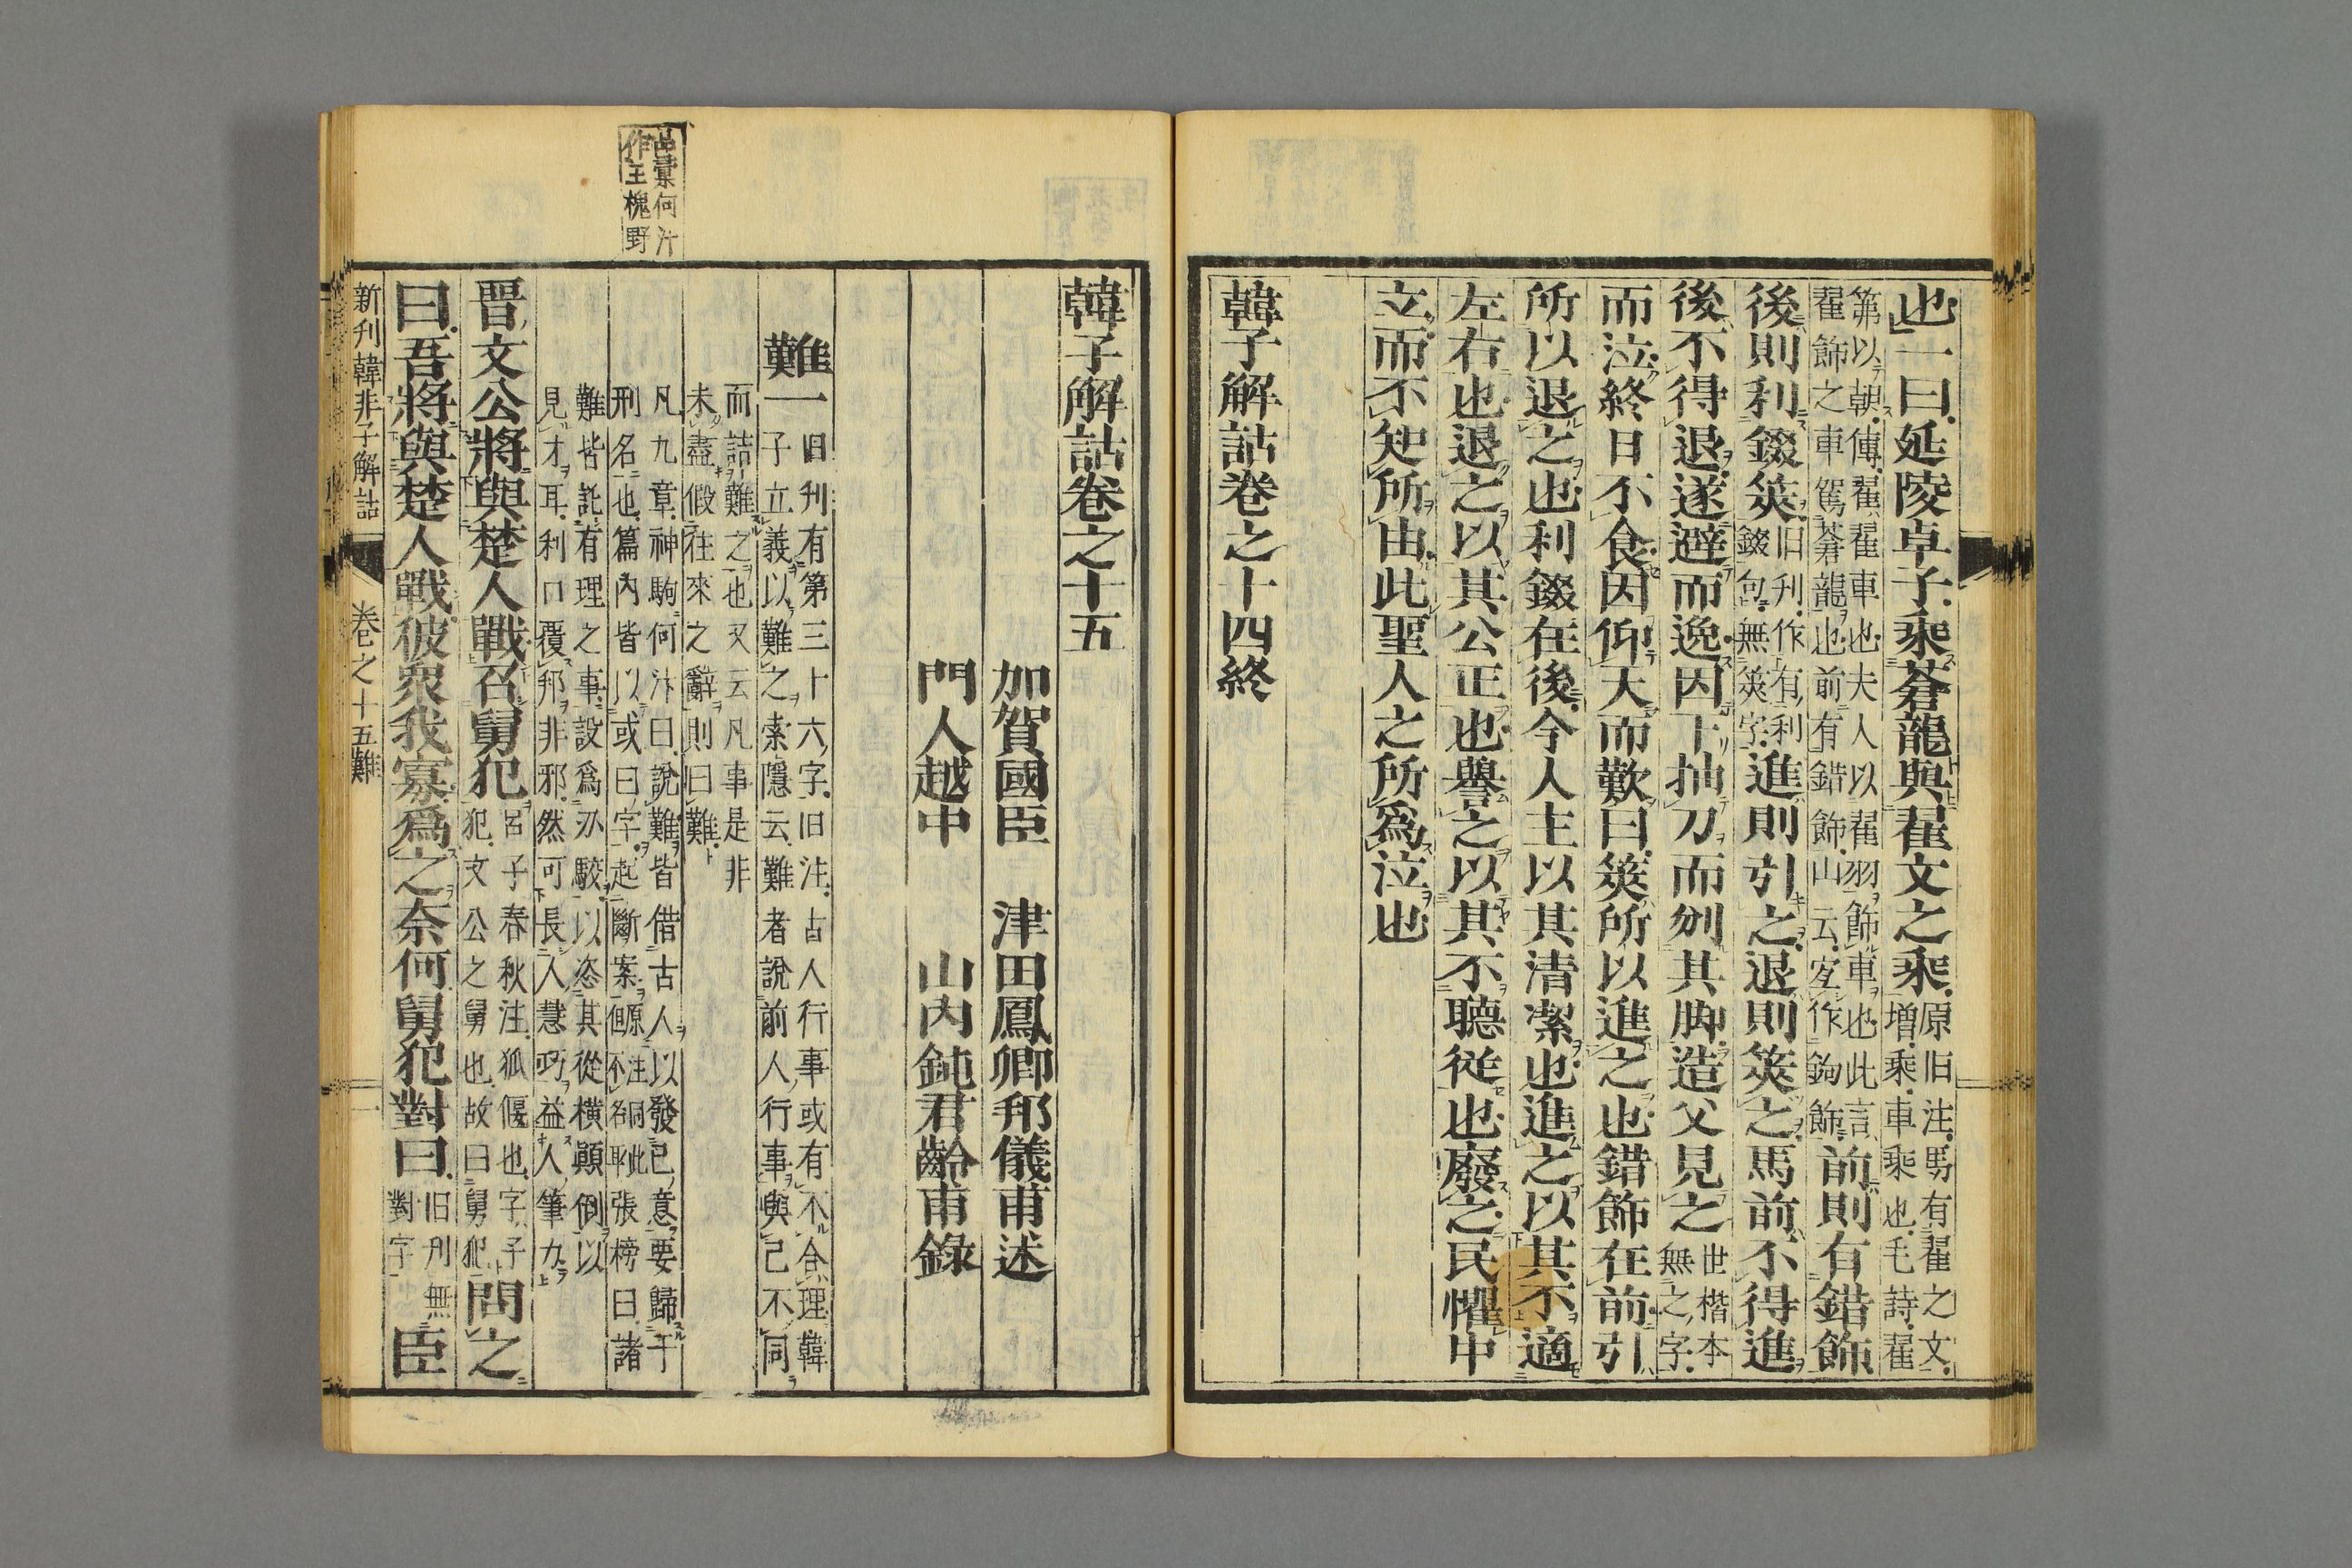 也一曰延陵卓子乘蒼龍與翟文之乘原旧注馬有翟之文
增乘車乘也毛詩翟
第以朝傳翟翟車也夫人以翟羽飾車也此言
翟飾之車駕蒼龍也前有錯飾山云定作鉤飾前則有錯飾
後則利錣筴旧刋作有利
錣包無筴字進則引之退則筴之馬前不得進
後不得退遂避而逸因下抽刀而刎其脚造父見之世楷本
無之字
而泣終日不食因仰天而歎曰筴所以進之也錯飾在前引
所以退之也利錣在後今人主以其清潔也進之以其不適
左右也退之以其公正也譽之以其不聽從也廢之民懼中
立而不知所由此聖人之所爲泣也
韓子解詁卷之十四終
韓子解詁卷之十五
加賀國臣 津田鳳卿邦儀甫述
門人越中 山內鈍君齡甫錄
難一旧刋有第三十六字旧注古人行事或有不合理韓
子立義以難之索隱云難者說前人行事與己不同
而詰難之也又云凡事是非
未盡假往來之辭則曰難
凡九章神駒何汴曰說難皆借古人以發己意要歸于
刑名也篇內皆以或曰字起斷案原注
不名恥張榜曰諸
難皆託有理之事設爲刅駮以恣其從橫顚倒以
見才耳利口覆邦非邪然可長人慧巧益人筆力
晋文公將與楚人戰召舅犯呂子春秋注狐偃也字子
犯文公之舅也故曰舅犯問之
曰吾將與楚人戰彼衆我寡爲之奈何舅犯對曰旧刋無
對字臣
新刋韓非子解詁 卷之十五難 一
品彙何汴
作王槐野